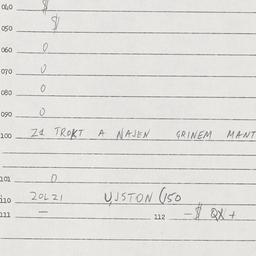 040 $
050 $
060 0
070 0
080 0
090 0
100 21 TROKT A NAJEN GRINEM MANT
101 0
110 20L21 UJSTON (150
111 — 112 -$ QX +